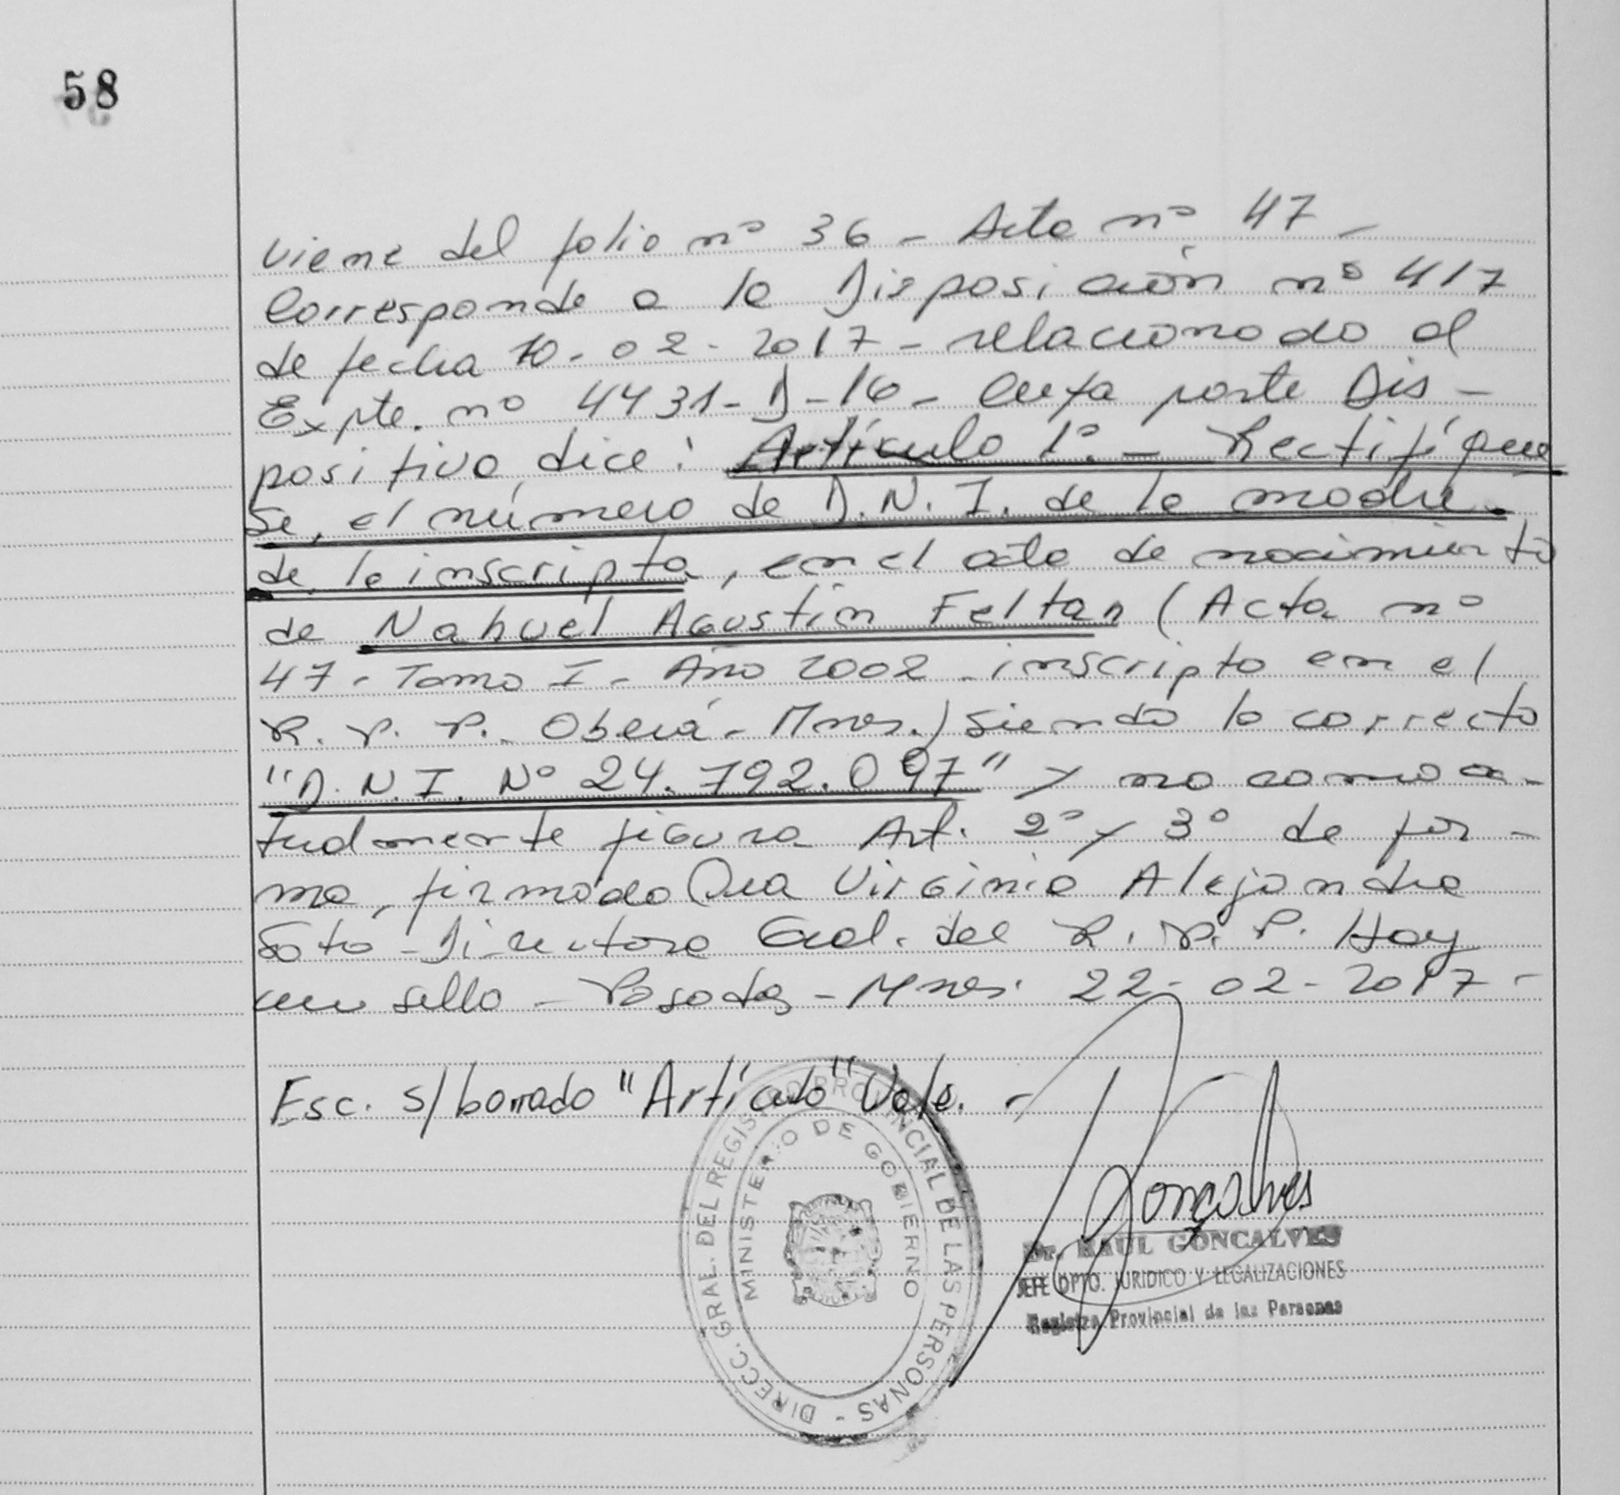 58
Viene del folio nº 36 - Acta nº 47 -
Corresponde a la Disposición nº 417
de fecha 10-02-2017 - relacionado al
Expte. nº 4431-D-16 - Cuya parte Dis-
positiva, dice: Artículo 1º. - Rectifíquese
se, el número de D.N.I. de la madre
de la inscripta, en el acta de nacimiento
de Nahuel Agustin Feltan (Acta nº
47 - Tomo I - Año 2002 - inscripto en el
R. P. P. - Oberá - Mnes.) siendo lo correcto
"D.N.I. Nº 24.792.097" y no como ac-
tualmente figura. Art. 2º y 3º de for-
ma, firmado Dra Virginia Alejandra
Soto - Directora Gral. del R. P. P. Hay
un sello - Posadas - Mnes. 22-02-2017 -
Esc. s/ borrado "Artículo" Vale. -
DIRECC. GRAL. DEL REGISTRO PROVINCIAL DE LAS PERSONAS -
MINISTERIO DE GOBIERNO
Gonçalves
Dr. RAUL GONCALVES
JEFE DPTO. JURIDICO Y LEGALIZACIONES
Registro Provincial de las Personas